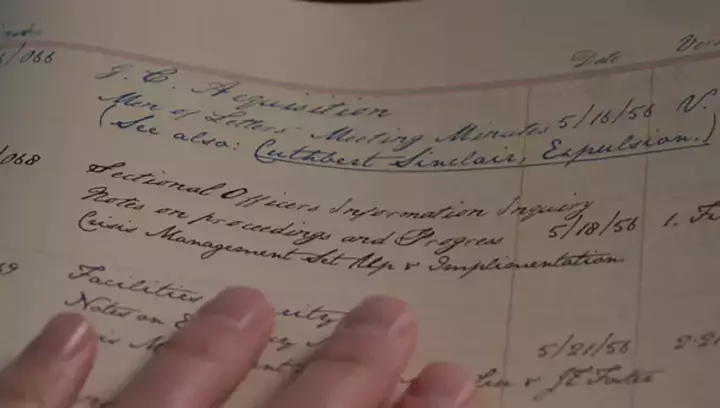 Date
/066
G. C. Acquisition
Men of Letters' Meeting Minutes 5/16/56 N.
(See also: Cuthbert Sinclair, Expulsion.)
/068
Sectional Officers Information Inquiry
Notes on proceedings and Progress 5/18/56 1.
Crisis Management Set Up & Implimentation
Facilities
Notes on
5/21/56 2.21
& JE Foster